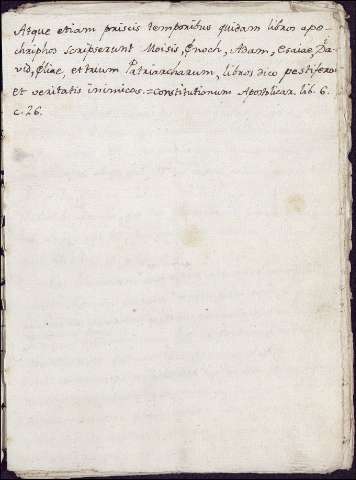 Atque etiam priscis temporibus quidam libros apo-
chriphos scripserunt Moisis, Enoch, Adam, Esaiae, Da-
vid, Eliae, et trium Patriarcharum, libros dico pestiferos
et veritatis inimicos.=Constitutionum Apostolicar. lib. 6.
c. 26.